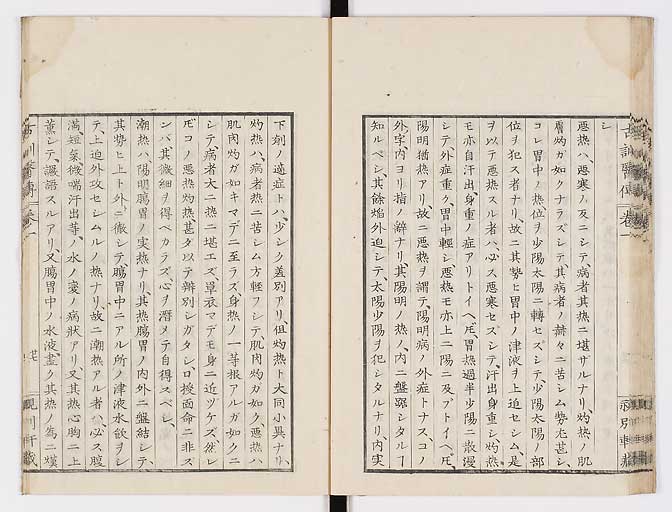 シ
悪热ハ、悪寒ノ反ニシテ、病者其热ニ堪ザルナリ、灼热ノ肌
膚灼ガ如クナラズシテ、其病者ノ赫々ニ苦シム勢尤甚シ、
コレ胃中ノ热位ヲ少陽太陽ニ轉セズシテ、少陽太陽ノ部
位ヲ犯ス者ナリ、故ニ其勢ヒ胃中ノ津液ヲ上迫セシム、是
ヲ以テ悪热スル者ハ、必ス悪寒セズシテ、汗出身重シ、灼热
モ亦自汗出、身重ノ症アリトイヘ𪜈、胃热過半少陽ニ散漫
シテ、外症重ク、胃中輕シ、悪热モ亦上ニ陽ニ及ブトイヘ𪜈、
陽明猶热アリ、故ニ悪热ヲ謂テ、陽明病ノ外症トナス、コノ
外字内ヨリ指ノ辭ナリ、其陽明ノ热ノ、内ニ盤踞シタルヿ
知ルベシ、其餘焰外迫シテ、太陽少陽ヲ犯シタルナリ、内実
下剤ノ適症トハ、少シク差別アリ、但灼热ト大同小異ナリ、
灼热ハ、病者热ニ苦シム方輕フシテ、肌肉灼ガ如ク、悪热ハ
肌肉灼ガ如キマデニ至ラズ、身热ノ一等根アルガ如クニ
シテ、病者大ニ热ニ堪エズ、單衣マデモ身ニ近ツケズ、然レ
𪜈コノ悪热灼热甚タ以テ辨別シガタシ、口授面命ニ非ズ
ンバ、其微細ヲ得ベカラズ、心ヲ潛メテ自得スベシ、
潮热ハ、陽明腸胃ノ実热ナリ、其热腸胃ノ内外ニ盤結シテ、
其勢ヒ上ト外ニ徹シテ、腸胃中ニアル所ノ津液水飲ヲシ
テ、上迫外攻セシムルノ热ナリ、故ニ潮热アル者ハ、必ス腹
満短氣、微喘汗出等ノ、水ノ変ノ病狀アリ、又其热心胸ニ上
薫シテ、譫語スルアリ、又腸胃中ノ水液、盡ク其热ノ為ニ熯